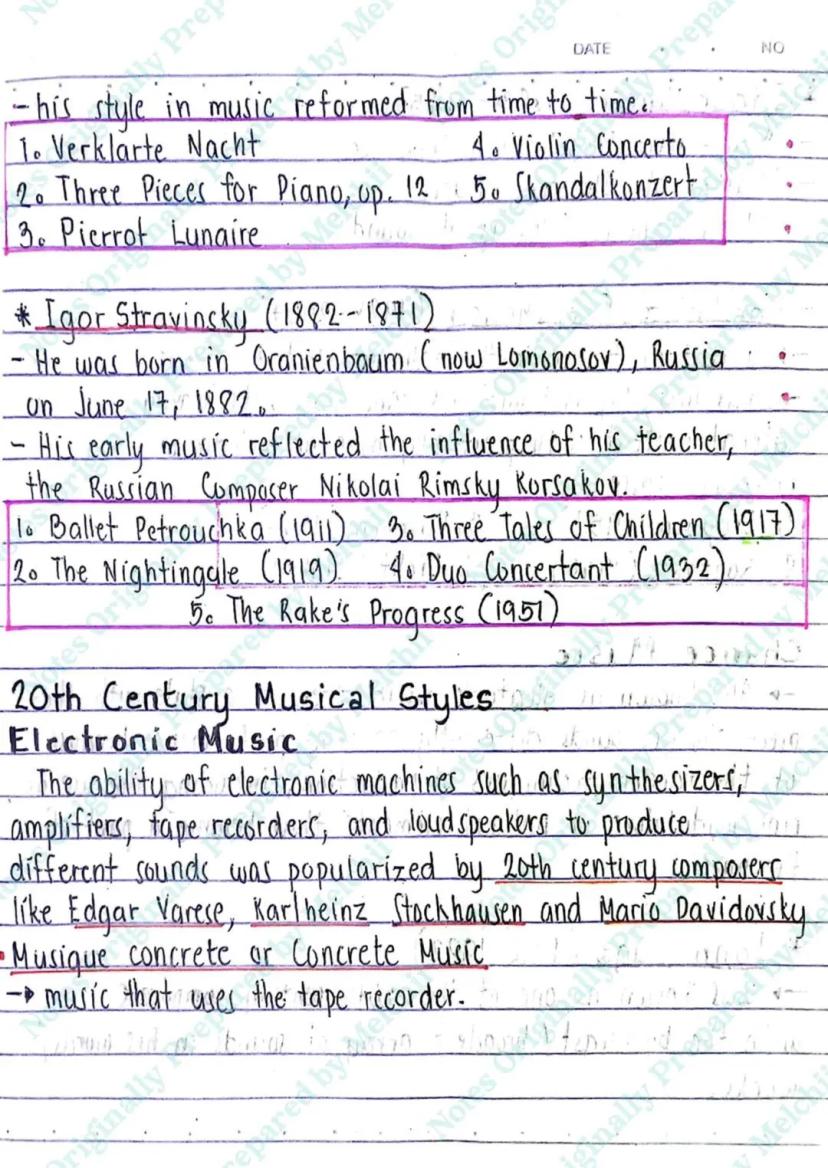 DATE . . NO
- his style in music reformed from time to time.
1. Verklarte Nacht 4. Violin Concerto
2. Three Pieces for Piano, op. 12 5. Skandalkonzert
3. Pierrot Lunaire
* Igor Stravinsky (1882-1871)
- He was born in Oranienbaum (now Lomonosov), Russia
on June 17, 1882.
- His early music reflected the influence of his teacher,
the Russian Composer Nikolai Rimsky Korsakov.
1. Ballet Petrouchka (1911) 3. Three Tales of Children (1917)
2. The Nightingale (1919) 4. Duo Concertant (1932)
5. The Rake's Progress (1951)
20th Century Musical Styles
Electronic Music
The ability of electronic machines such as synthesizers,
amplifiers, tape recorders, and loudspeakers to produce
different sounds was popularized by 20th century composers
like Edgar Varese, Karlheinz Stockhausen and Mario Davidovsky
• Musique concrete or Concrete Music
→ music that uses the tape recorder.